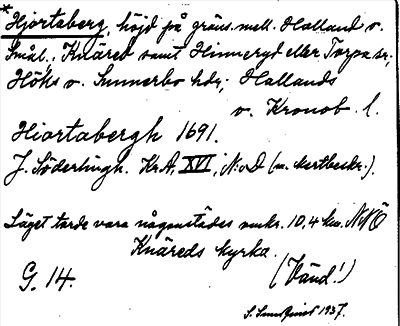 * Hjortaberg, höjd på gräns mell. Halland o.
Smål., Knäred samt Hinneryd eller Torpa sr;
Höks o. Sunnerbo hdr; Hallands
o. Kronob. l.
Hiortabergh 1691.
J. Söderlingh. Kr.A. XVI, N:o I (m. kartbeskr.).
Läget torde vara någonstädes omkr. 10,4 km. NNÖ
Knäreds kyrka.
G. 14. (Vänd!)
1937.